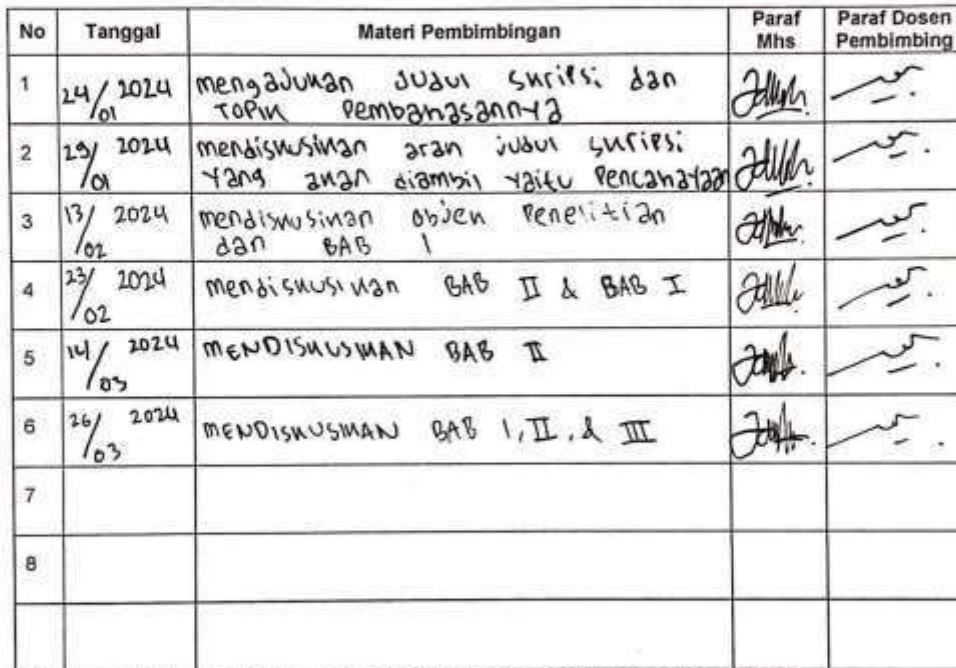 No Tanggal Materi Pembimbingan Paraf Mhs Paraf Dosen Pembimbing
1 24/01 2024 mengajukan judul skripsi dan
topik pembahasannya
2 29/01 2024 mendiskusikan arah judul skripsi
yang akan diambil yaitu pencahayaan
3 13/02 2024 mendiskusikan objek penelitian
dan BAB I
4 23/02 2024 mendiskusikan BAB II & BAB I
5 14/03 2024 MENDISKUSIKAN BAB II
6 26/03 2024 MENDISKUSIKAN BAB I, II, & III
7
8